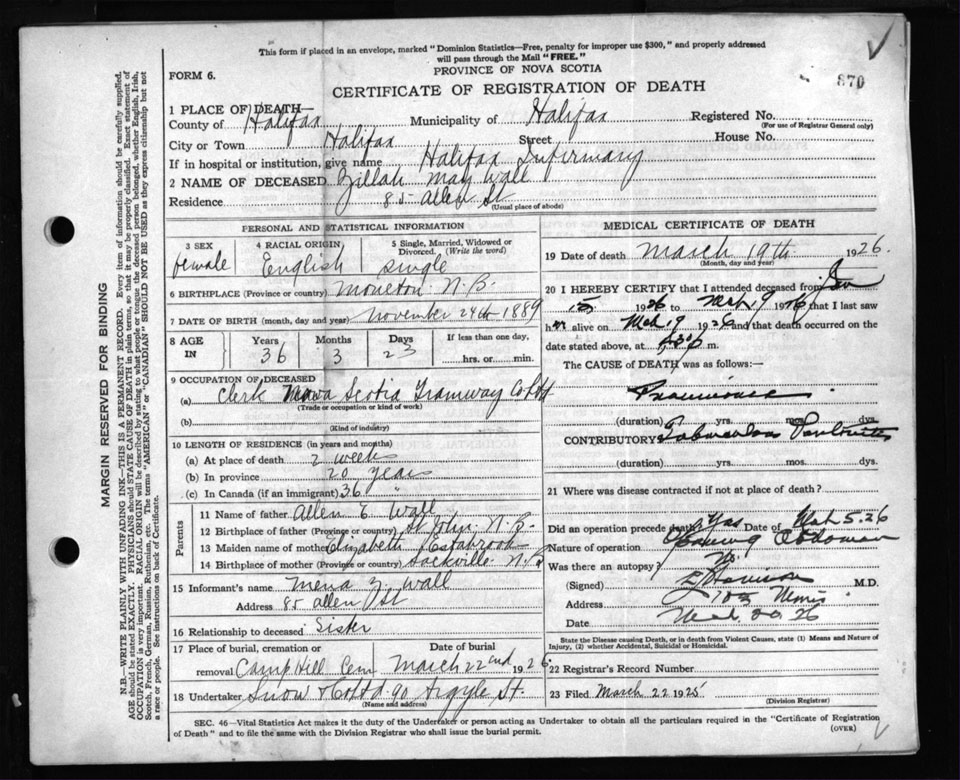 This form if placed in an envelope, marked "Dominion Statistics—Free, penalty for improper use $300," and properly addressed
will pass through the Mail "FREE."
PROVINCE OF NOVA SCOTIA
FORM 6.
870
CERTIFICATE OF REGISTRATION OF DEATH
1 PLACE OF DEATH—
County of Halifax Municipality of Halifax Registered No.
(For use of Registrar General only)
City or Town Halifax Street House No.
If in hospital or institution, give name Halifax Infirmary
2 NAME OF DECEASED Zillah May Wall
Residence 85 Allen St
(Usual place of abode)
PERSONAL AND STATISTICAL INFORMATION
3 SEX female
4 RACIAL ORIGIN English
5 Single, Married, Widowed or Divorced. (Write the word) single
6 BIRTHPLACE (Province or country) Moncton N.B.
7 DATE OF BIRTH (month, day and year) November 24th 1889
8 AGE IN Years 36 Months 3 Days 23 If less than one day, hrs. or min.
9 OCCUPATION OF DECEASED
(a) Clerk Nova Scotia Tramway Co Ltd
(Trade or occupation or kind of work)
(b)
(Kind of industry)
10 LENGTH OF RESIDENCE (in years and months)
(a) At place of death 2 weeks
(b) In province 20 years
(c) In Canada (if an immigrant) 36 "
Parents
11 Name of father Allen E. Wall
12 Birthplace of father (Province or country) St John N.B.
13 Maiden name of mother Elizabeth Estabrook
14 Birthplace of mother (Province or country) Sackville N.B.
15 Informant's name Mena Z. Wall
Address 85 Allen St
16 Relationship to deceased Sister
17 Place of burial, cremation or removal Camp Hill Cem Date of burial March 22nd 1926
18 Undertaker Snow & Co Ltd 90 Argyle St.
(Name and address)
MEDICAL CERTIFICATE OF DEATH
19 Date of death March 19th 1926
(Month, day and year)
20 I HEREBY CERTIFY that I attended deceased from
15 1926 to Mch 19 1926 that I last saw
her alive on Mch 19 1926 and that death occurred on the
date stated above, at m.
The CAUSE OF DEATH was as follows:
(duration) yrs. mos. dys.
CONTRIBUTORY Tuberculous Peritonitis
(duration) yrs. mos. dys.
21 Where was disease contracted if not at place of death?
Did an operation precede death? Yes Date of Mch 5.26
Nature of operation Opening Abdomen
Was there an autopsy? No
(Signed) M.D.
Address 103 Morris
Mch 20 26
State the Disease causing Death, or in death from Violent Causes, state (1) Means and Nature of
Injury, (2) whether Accidental, Suicidal or Homicidal.
22 Registrar's Record Number
23 Filed March 22 1925
(Division Registrar)
SEC. 46—Vital Statistics Act makes it the duty of the Undertaker or person acting as Undertaker to obtain all the particulars required in the "Certificate of Registration
of Death" and to file the same with the Division Registrar who shall issue the burial permit.
(OVER)
MARGIN RESERVED FOR BINDING
N.B.—WRITE PLAINLY WITH UNFADING INK—THIS IS A PERMANENT RECORD. Every item of information should be carefully supplied.
AGE should be stated EXACTLY. PHYSICIANS should STATE CAUSE OF DEATH in plain terms, so that it may be properly classified. Exact statement of
OCCUPATION is very important. RACIAL ORIGIN will be described by stating to what people or tongue the deceased person belonged, whether English, Irish,
Scotch, French, German, Russian, Ruthenian, etc. The terms "AMERICAN" or "CANADIAN" SHOULD NOT BE USED as they express citizenship but not
a race or people. See instructions on back of Certificate.